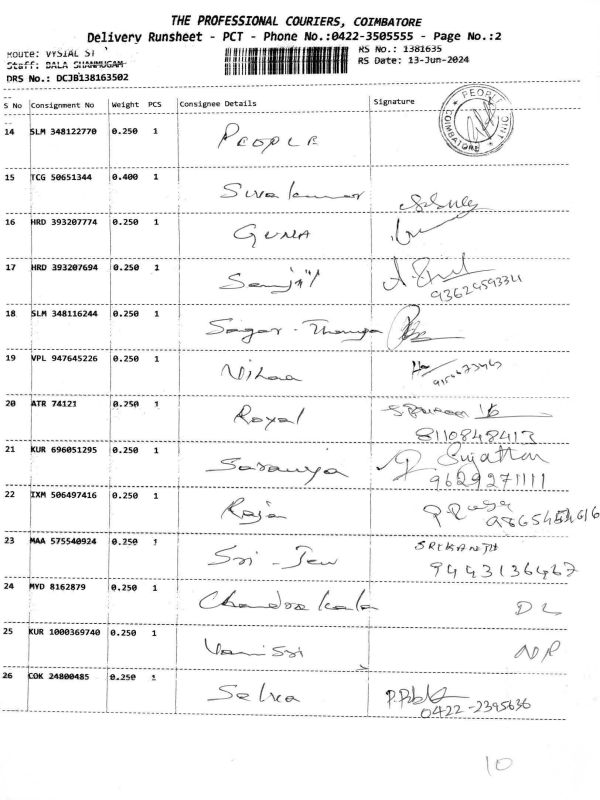 THE PROFESSIONAL COURIERS, COIMBATORE
Delivery Runsheet - PCT - Phone No.:0422-3505555 - Page No.:2
Route: VYSIAL ST
RS No.: 1381635
Staff: BALA SHANMUGAM
RS Date: 13-Jun-2024
DRS No.: DCJB138163502
S No Consignment No Weight PCS Consignee Details Signature
PEOPLE COIMBATORE
14 SLM 348122770 0.250 1 PEOPLE
15 TCG 50651344 0.400 1 Sivakumar
16 HRD 393207774 0.250 1 GUNA
17 HRD 393207694 0.250 1
9362459334
18 SLM 348116244 0.250 1 Sagar - Thanga
19 VPL 947645226 0.250 1
20 ATR 74121 0.250 1 Royal
8110848413
21 KUR 696051295 0.250 1 Saranya Sujatha
9629271111
22 IXM 506497416 0.250 1 Raja
23 MAA 575540924 0.250 1 Sri - Jew SRIKANTH
9443136467
24 MYD 8162879 0.250 1 Chandrakala DL
25 KUR 1000369740 0.250 1 Vani Sri NR
26 COK 24800485 0.250 1 Selva
0422-2395636
10